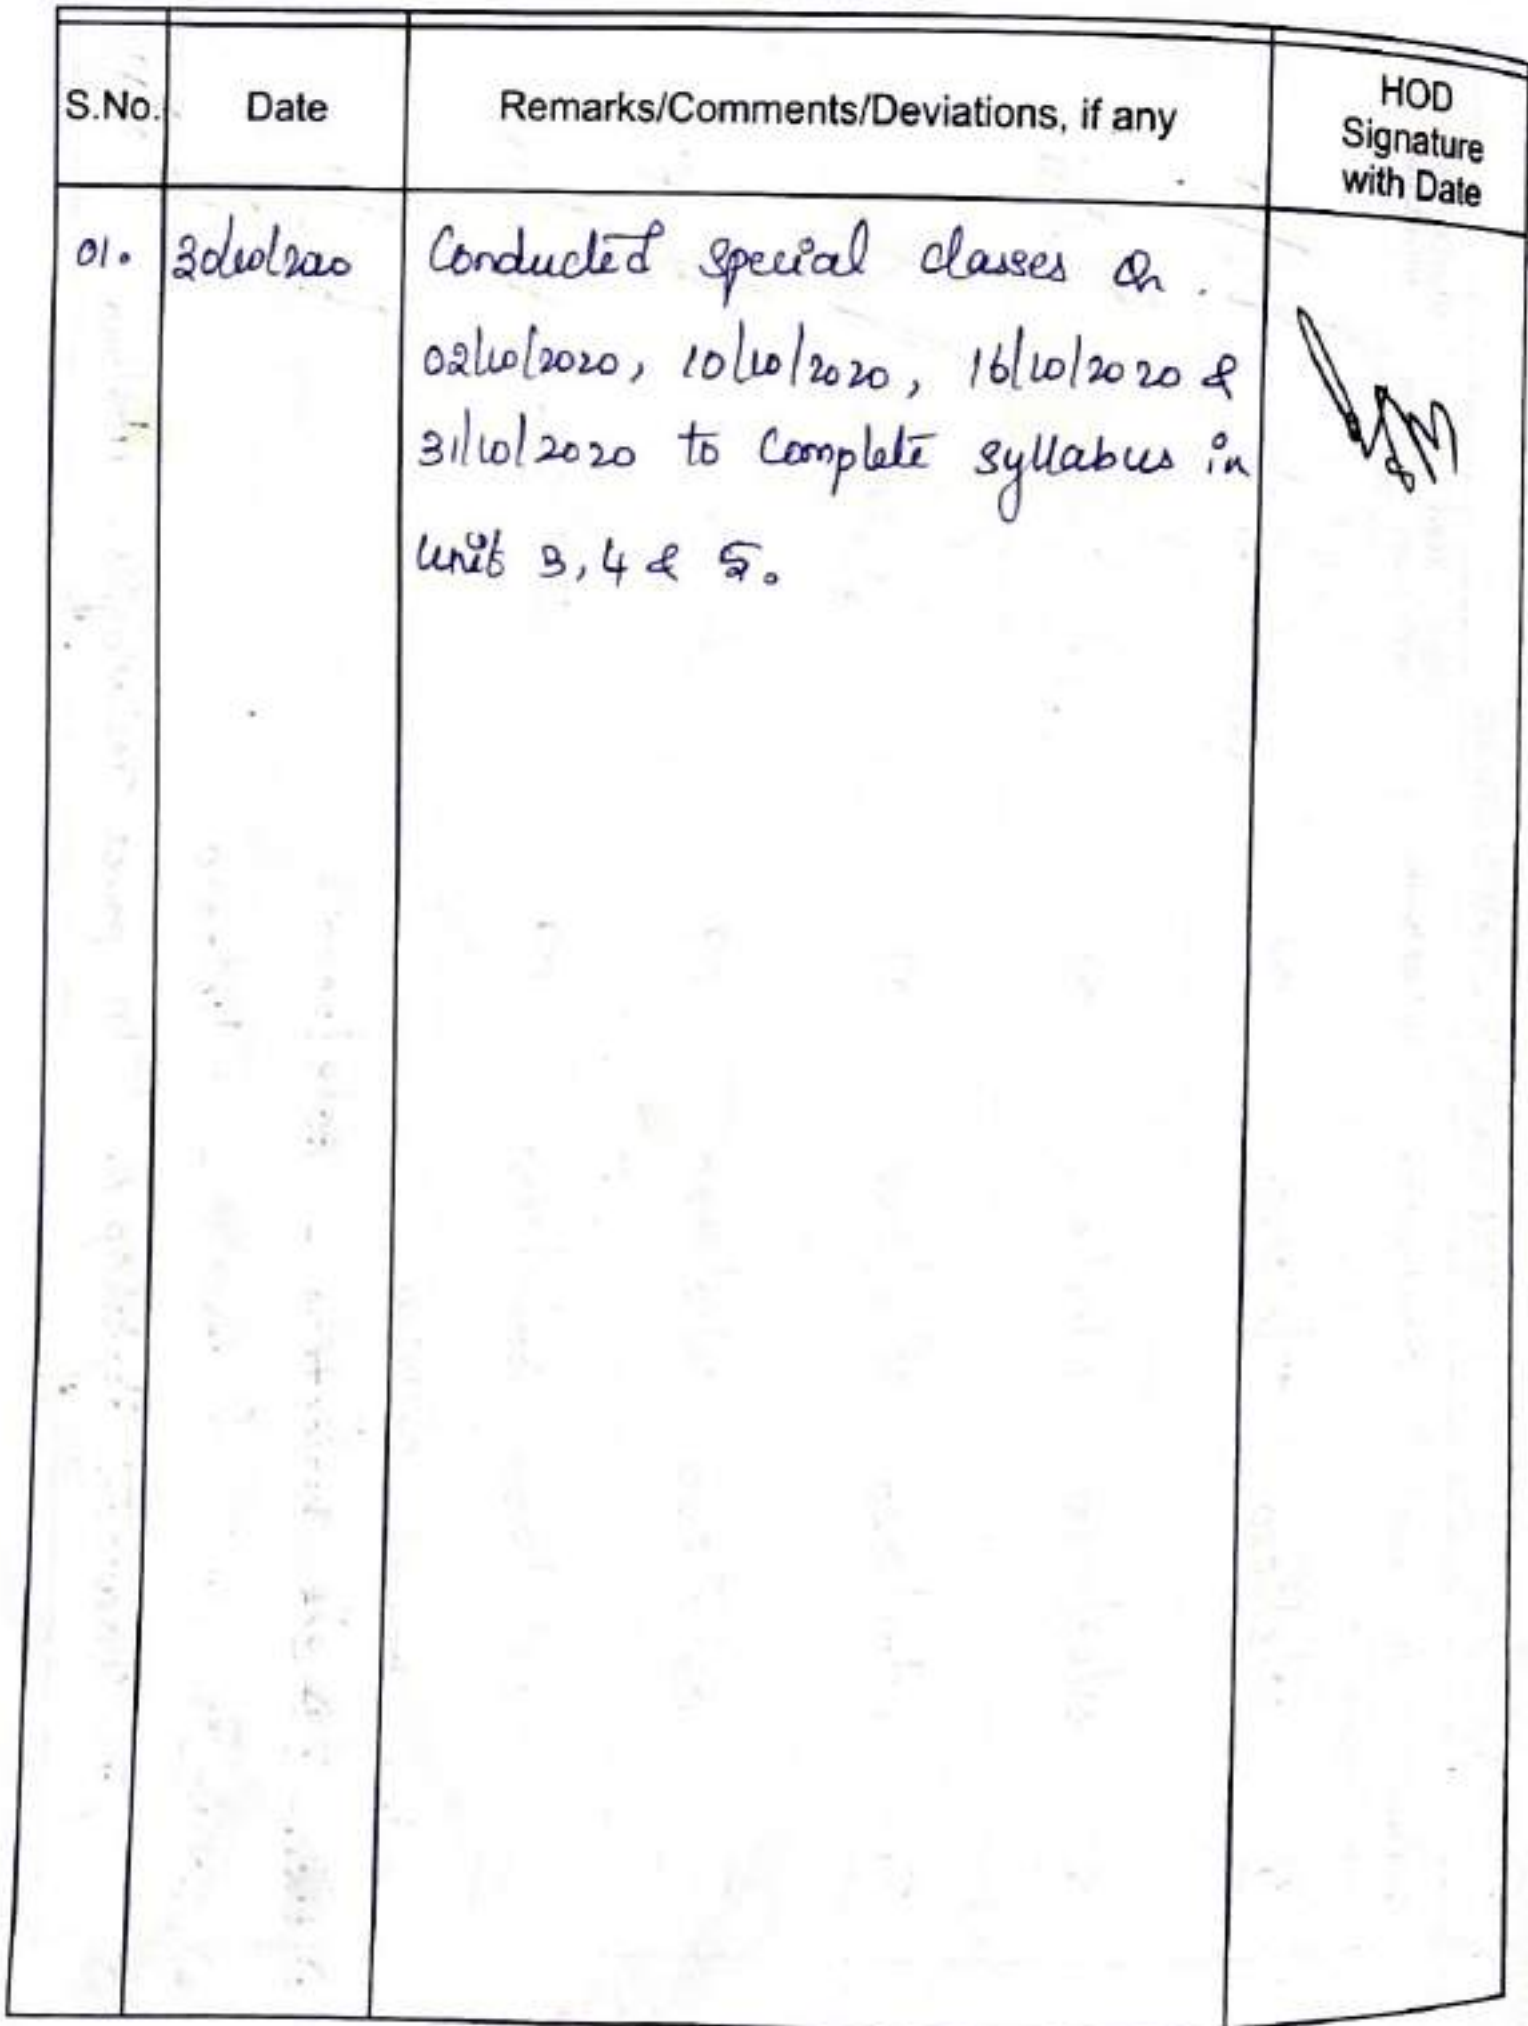 S.No.
Date
Remarks/Comments/Deviations, if any
HOD
Signature
with Date
01.
Conducted special classes on
02/10/2020, 10/10/2020, 16/10/2020 &
31/10/2020 to Complete syllabus in
Unit 3, 4 & 5.